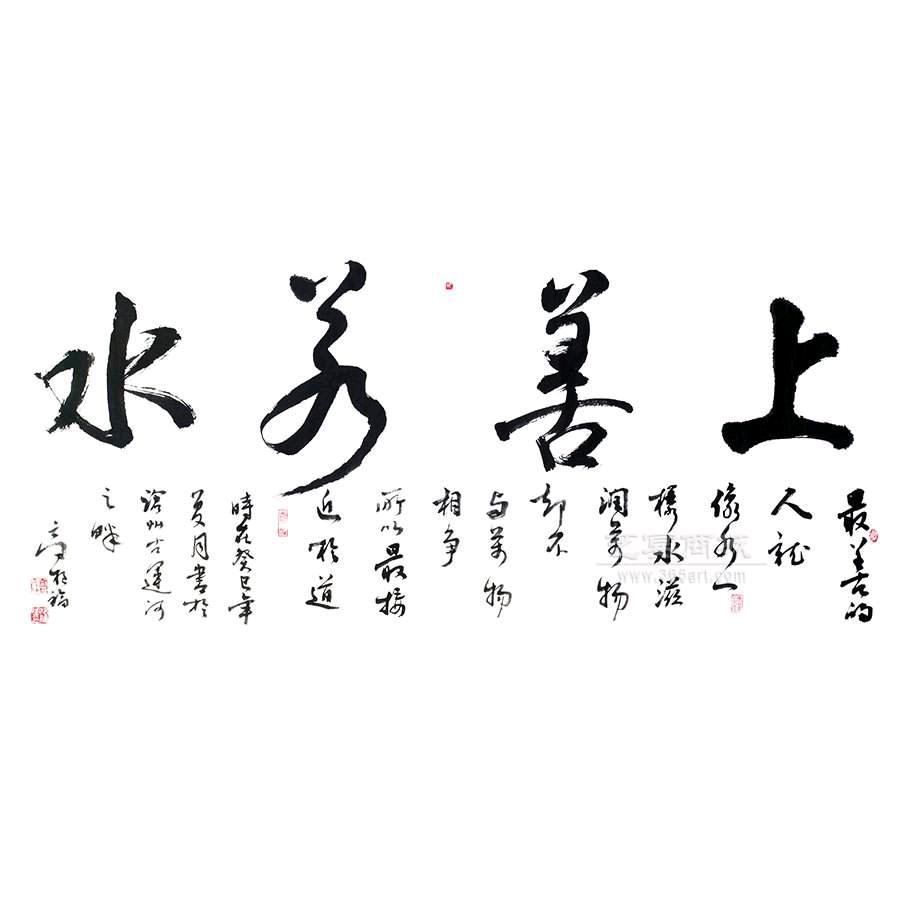 上善若水
最善的
人就
像水一
样水滋
润万物
却不
与万物
相争
所以最接
近於道
時在癸巳年
夏月書於
沧州古運河
之畔
www.365art.com